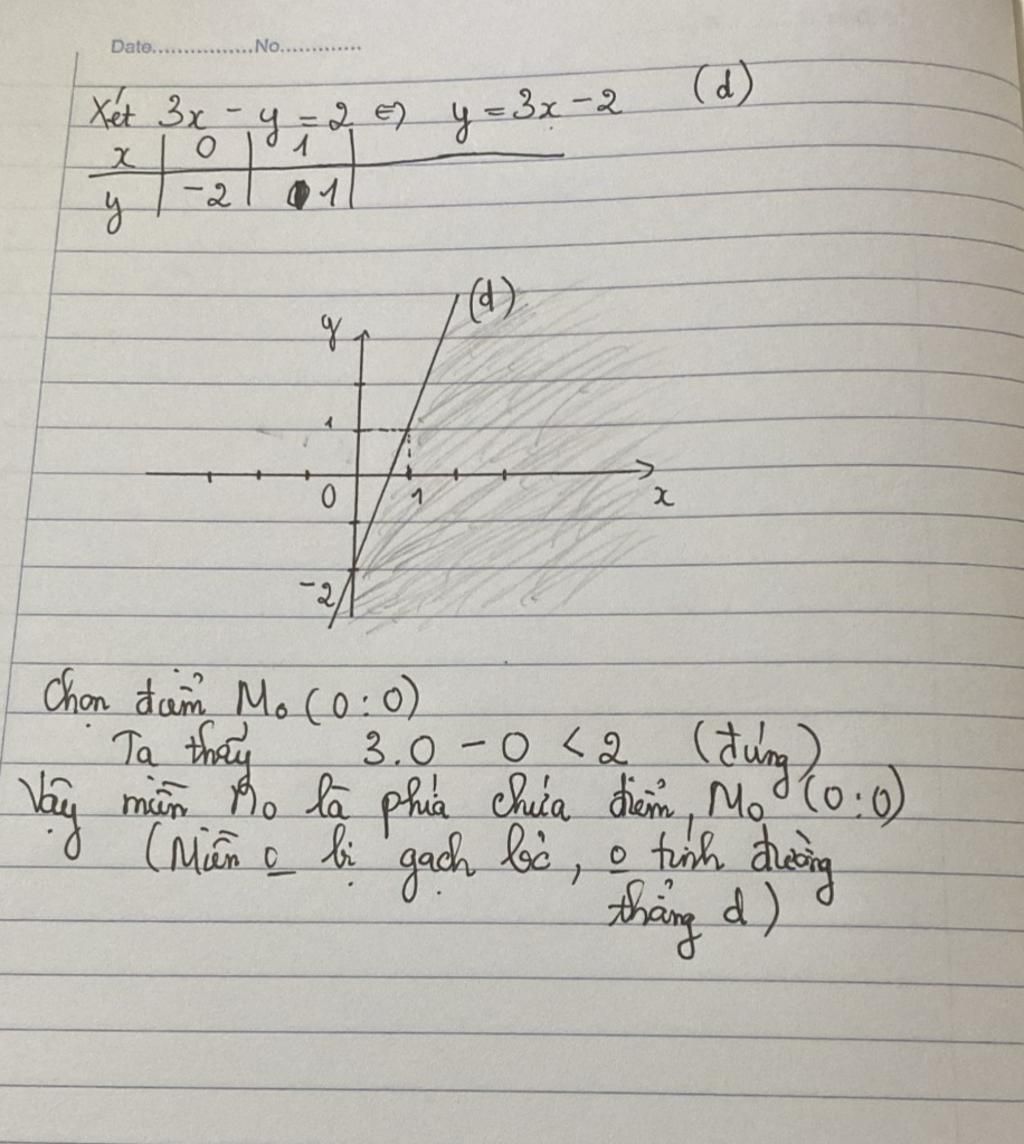 Date................No.............
Xét 3x - y = 2 ⇔ y = 3x - 2 (d)
x | 0 | 1
y | -2 | 1
(d)
y
1
0 1 x
-2
Chọn điểm M₀ (0:0)
Ta thấy 3.0 - 0 < 2 (đúng)
Vậy miền N₀ là phía chứa điểm M₀ (0:0)
(Miền o bị gạch bỏ, o tính đường
thẳng d)